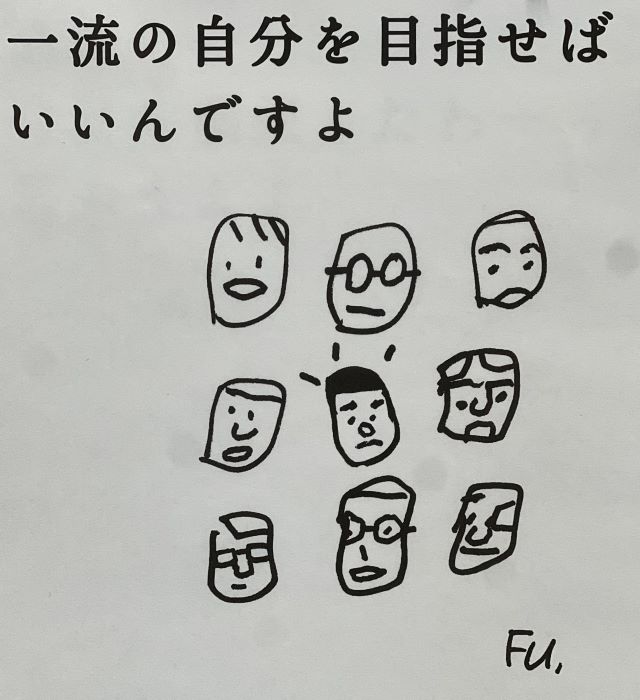 一流の自分を目指せば
いいんですよ
FU,